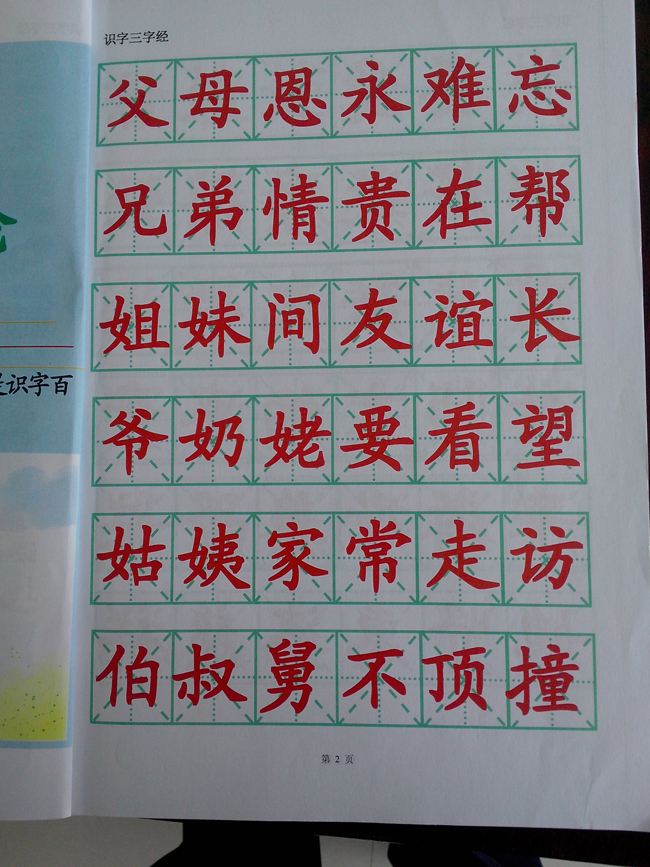 识字三字经
父母恩永难忘
兄弟情贵在帮
姐妹间友谊长
爷奶姥要看望
姑姨家常走访
伯叔舅不顶撞
第 2 页
识字百